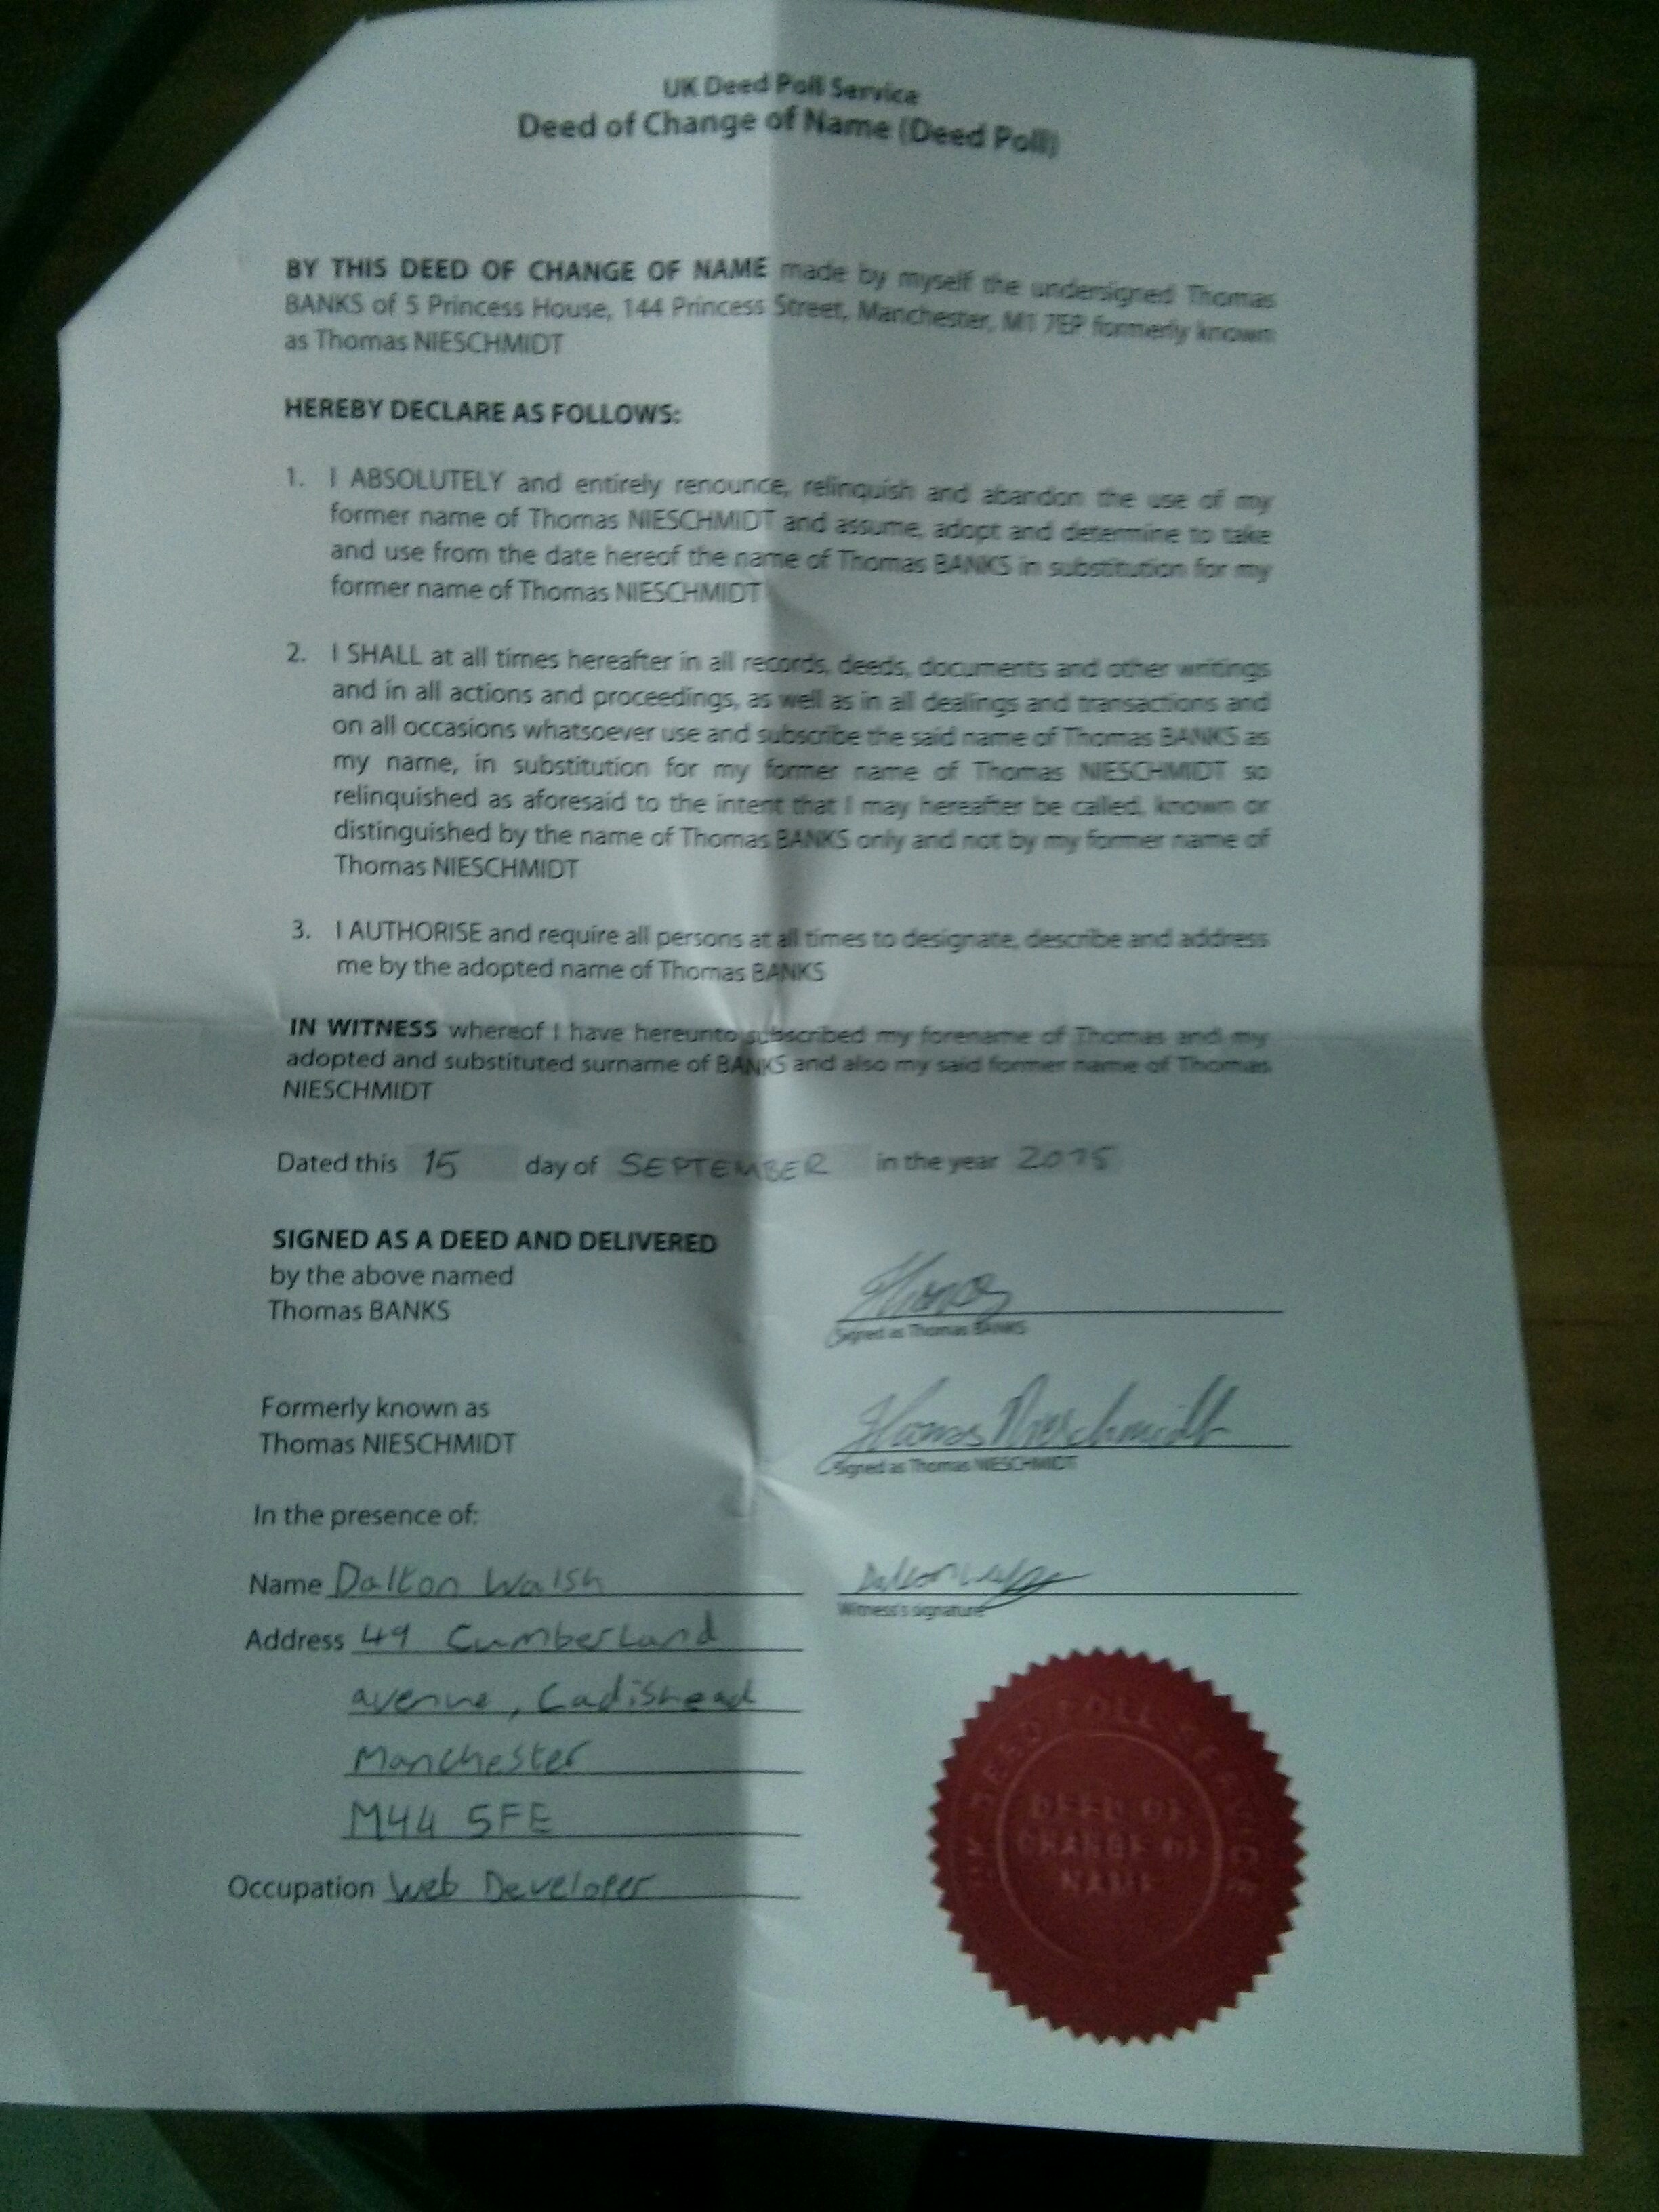 UK Deed Poll Service
Deed of Change of Name (Deed Poll)
BY THIS DEED OF CHANGE OF NAME made by myself the undersigned Thomas
BANKS of 5 Princess House, 144 Princess Street, Manchester, M1 7EP formerly known
as Thomas NIESCHMIDT
HEREBY DECLARE AS FOLLOWS:
1. I ABSOLUTELY and entirely renounce, relinquish and abandon the use of my
former name of Thomas NIESCHMIDT and assume, adopt and determine to take
and use from the date hereof the name of Thomas BANKS in substitution for my
former name of Thomas NIESCHMIDT
2. I SHALL at all times hereafter in all records, deeds, documents and other writings
and in all actions and proceedings, as well as in all dealings and transactions and
on all occasions whatsoever use and subscribe the said name of Thomas BANKS as
my name, in substitution for my former name of Thomas NIESCHMIDT so
relinquished as aforesaid to the intent that I may hereafter be called, known or
distinguished by the name of Thomas BANKS only and not by my former name of
Thomas NIESCHMIDT
3. I AUTHORISE and require all persons at all times to designate, describe and address
me by the adopted name of Thomas BANKS
IN WITNESS whereof I have hereunto subscribed my forename of Thomas and my
adopted and substituted surname of BANKS and also my said former name of Thomas
NIESCHMIDT
Dated this 15 day of SEPTEMBER in the year 2015
SIGNED AS A DEED AND DELIVERED
by the above named
Thomas BANKS
Signed as Thomas BANKS
Formerly known as
Thomas NIESCHMIDT
Thomas Nieschmidt
Signed as Thomas NIESCHMIDT
In the presence of:
Name Dalton Walsh
Witness's signature
Address 49 Cumberland
avenue, Cadishead
Manchester
M44 5FE
Occupation Web Developer
UK DEED POLL SERVICE
DEED OF
CHANGE OF
NAME